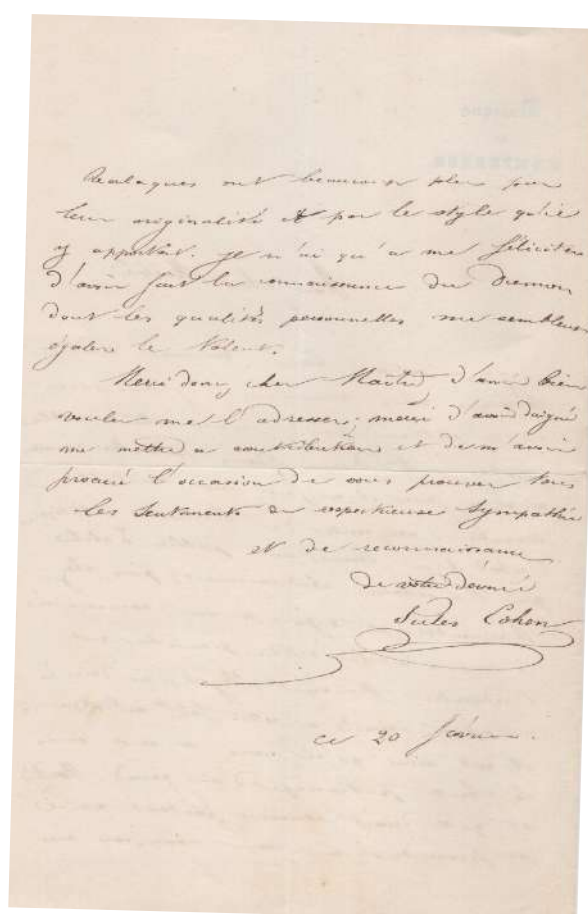 Analogues ont beaucoup plu par
leur originalité et par le style qu'il
y apportait. Je n'ai qu'à me féliciter
d'avoir fait la connaissance de
dont les qualités personnelles me semblent
égaler le talent.
Merci donc, cher Maître, d'avoir bien
voulu me l'adresser; merci d'avoir daigné
me mettre à contribution et de m'avoir
procuré l'occasion de vous prouver tous
les sentiments de respectueuse sympathie
et de reconnaissance
de votre dévoué
Jules Cohen
ce 20 février.